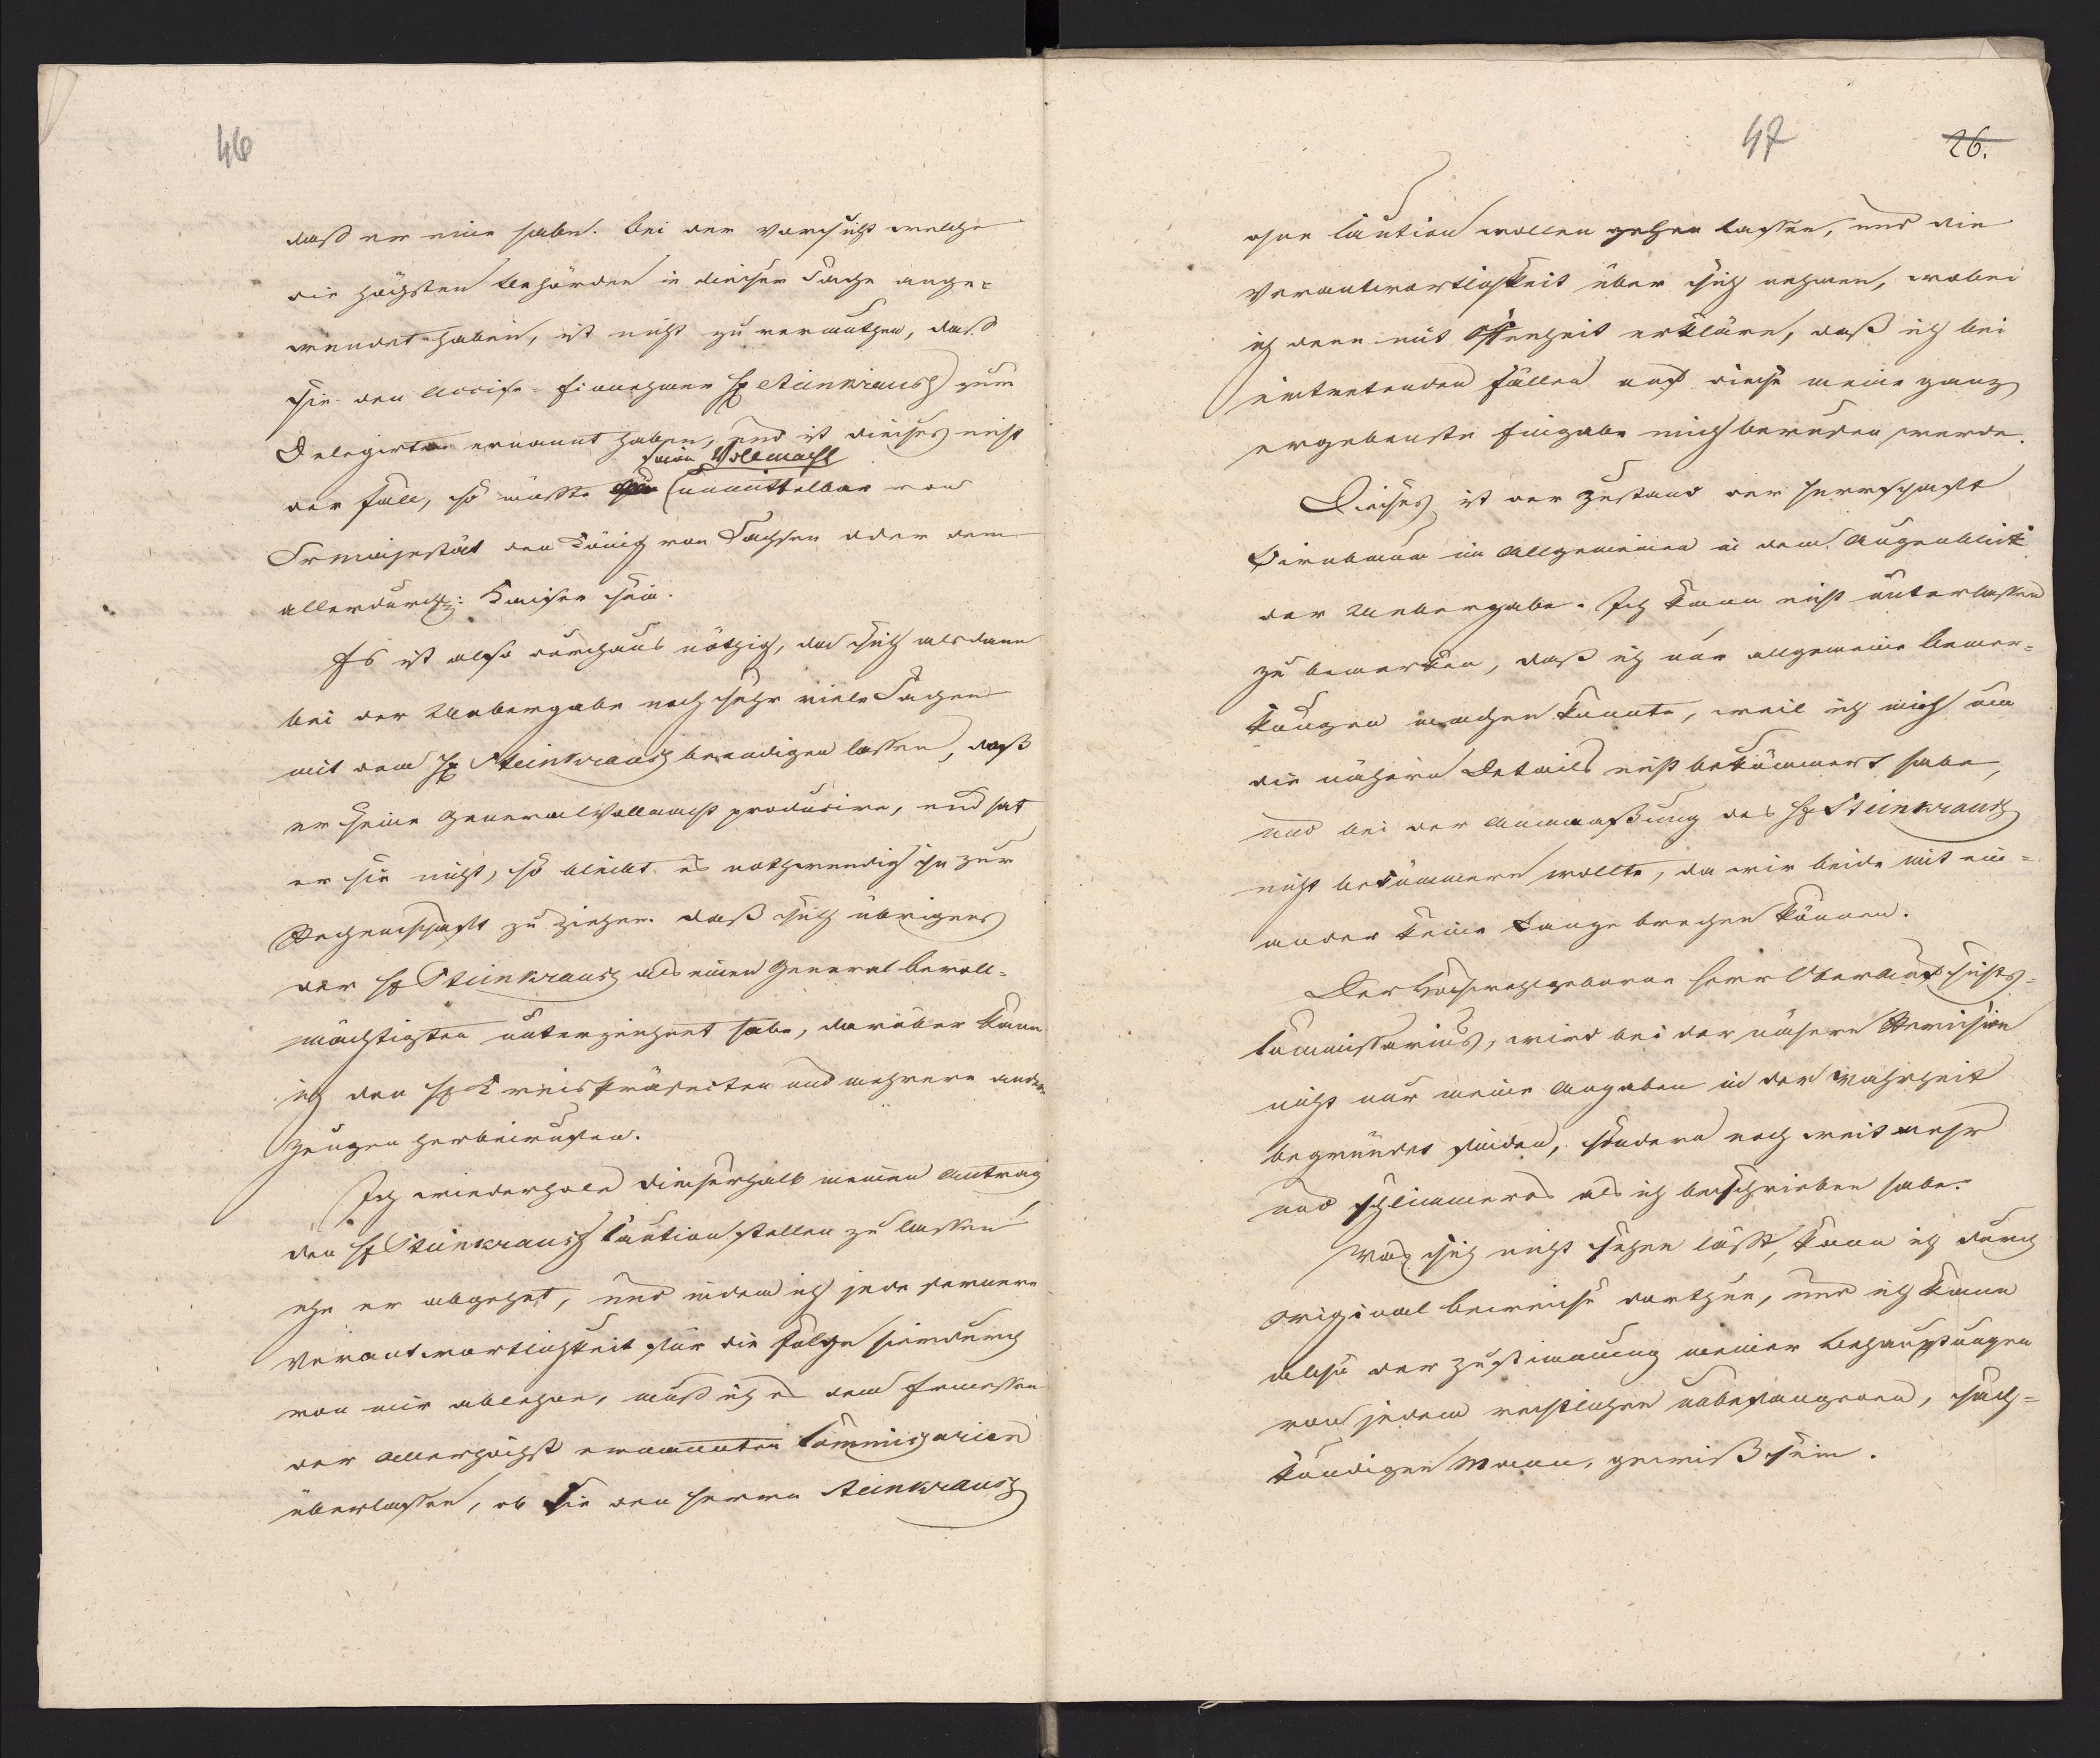 46
daß er eine habe. Bei der Vorsicht welche
die höchsten Behörden in dieser Sache ange=
wendet haben, ist nicht zu vermuthen, daß
sie den Accise-Einnehmer H. Steinkrausz zum
Delegirten ernannt haben, und ist dieses nicht
seine Vollmacht
der Fall, so müßte unmittelbar von
Sr Majestät den König von Sachsen oder dem
allerdurchl: Kaiser sein.
Es ist also durchaus nöthig, da sich alsdann
bei der Uebergabe noch sehr viele Sachen
mit dem H. Steinkrausz beendigen lassen, daß
er seine General Vollmacht producire, und hat
er sie nicht, so bleibt es nothwendig ihn zur
Rechenschaft zu ziehen. Daß sich übrigens
der H. Steinkrausz als einen General Bevoll=
mächtigten unterzeichnet habe, darüber kann
ich den H. Kreis Präfecten und mehrere andere
Zeugen herbeirufen.
Ich wiederhole dieserhalb meinen Antrag
den H. Steinkrausz Caution stellen zu lassen
ehe er abgehet, und indem ich jede fernere
Verantwortlichkeit für die Folge hierdurch
von mir ablehne, muß ich es dem Ermessen
der Allerhöchst ernannten Commissarien
überlassen, ob sie den Herrn Steinkrausz
47
26.
ohne Caution wollen gehen lassen, und die
Verantwortlichkeit über sich nehmen, wobei
ich denn mit Offenheit erkläre, daß ich bei
eintretenden Fällen auf diese meine ganz
ergebenste Eingabe mich berufen werde.
Dieses ist der Zustand der Herrschaft
Birnbaum im Allgemeinen in dem Augenblick
der Uebergabe. Ich kann nicht unterlassen
zu bemerken, daß ich nur allgemeine Bemer=
kungen machen konnte, weil ich mich um
die nähern Details nicht bekümmert habe,
und bei der Anmaßung des H. Steinkrausz
nicht bekümmern wollte, da wir beide mit ein=
ander keine Lanze brechen können.
Der Hochwohlgeborne Herr Oberaufsichts=
Commissarius, wird bei der nähern Revision
nicht nur meine Angaben in der Wahrheit
begründet finden, sondern noch weit mehr
und schlimmeres als ich beschrieben habe.
Was sich nicht sehen läßt, kann ich durch
Original Beweise darthun, und ich kann
also der Zustimmung meiner Behauptungen
von jedem rechtlichen unbefangenen, sach=
kundigen Mann, gewiß sein.